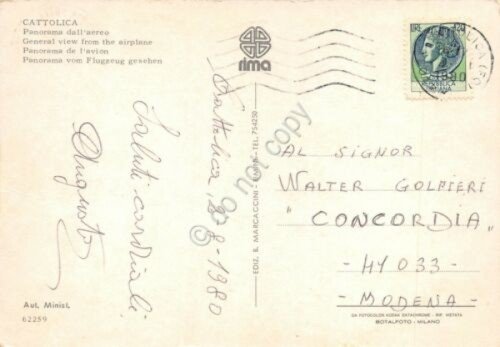 CATTOLICA
Panorama dall'aereo
General view from the airplane
Panorama de l'avion
Panorama vom Flugzeug gesehen
rima
Cattolica, 2-8-1980
Saluti cordiali
Augusto
Aut. Minist.
62259
EDIZ. E. MARCACCINI - RIMINI - TEL. 754250
do not copy
AL SIGNOR
WALTER GOLFIERI
"CONCORDIA"
- 41033 -
- MODENA -
DA FOTOCOLOR KODAK EKTACHROME - RIP. VIETATA
BOTALFOTO - MILANO